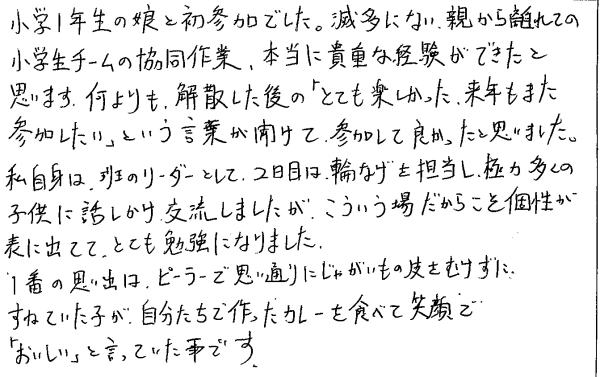 小学1年生の娘と初参加でした。滅多にない、親から離れての
小学生チームの協同作業、本当に貴重な経験ができたと
思います。何よりも、解散した後の「とても楽しかった、来年もまた
参加したい」という言葉が聞けて、参加して良かったと思いました。
私自身は、班のリーダーとして、2日目は、輪なげを担当し、極力多くの
子供に話しかけ、交流しましたが、こういう場だからこそ個性が
表に出てて、とても勉強になりました。
1番の思い出は、ピーラーで思い通りにじゃがいもの皮をむけずに、
すねていた子が、自分たちで作ったカレーを食べて笑顔で
「おいしい」と言っていた事です。